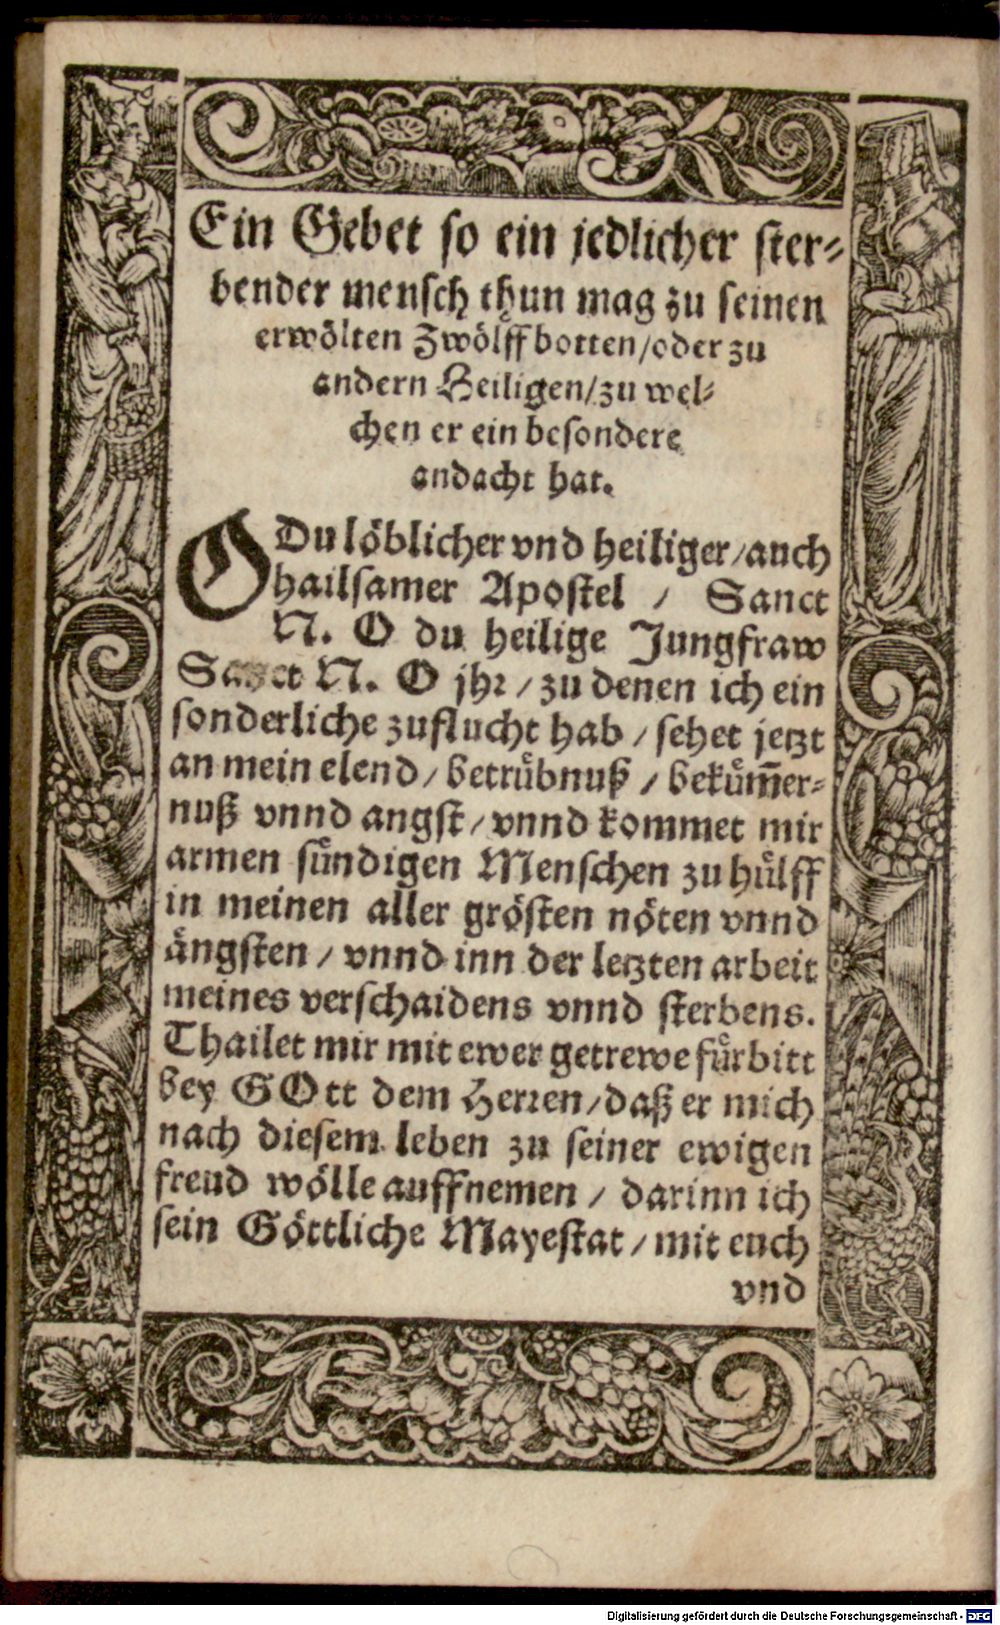 Ein Gebet so ein jedlicher ster⸗
bender mensch thun mag zu seinen
erwölten Zwölffbotten/oder zu
andern Heiligen/zu wel⸗
chen er ein besondere
andacht hat.
O Du löblicher vnd heiliger/auch
hailsamer Apostel / Sanct
N. O du heilige Jungfraw
Sanct N. O jhr / zu denen ich ein
sonderliche zuflucht hab / sehet jetzt
an mein elend / betrübnuß / bekům̄er⸗
nuß vnnd angst / vnnd kommet mir
armen sündigen Menschen zu hůlff
in meinen aller grösten nöten vnnd
ängsten / vnnd inn der letzten arbeit
meines verschaidens vnnd sterbens.
Thailet mir mit ewer getrewe fürbitt
bey GOtt dem Herren/daß er mich
nach diesem leben zu seiner ewigen
freud wölle auffnemen / darinn ich
sein Göttliche Mayestat / mit euch
vnd
Digitalisierung gefördert durch die Deutsche Forschungsgemeinschaft - DFG